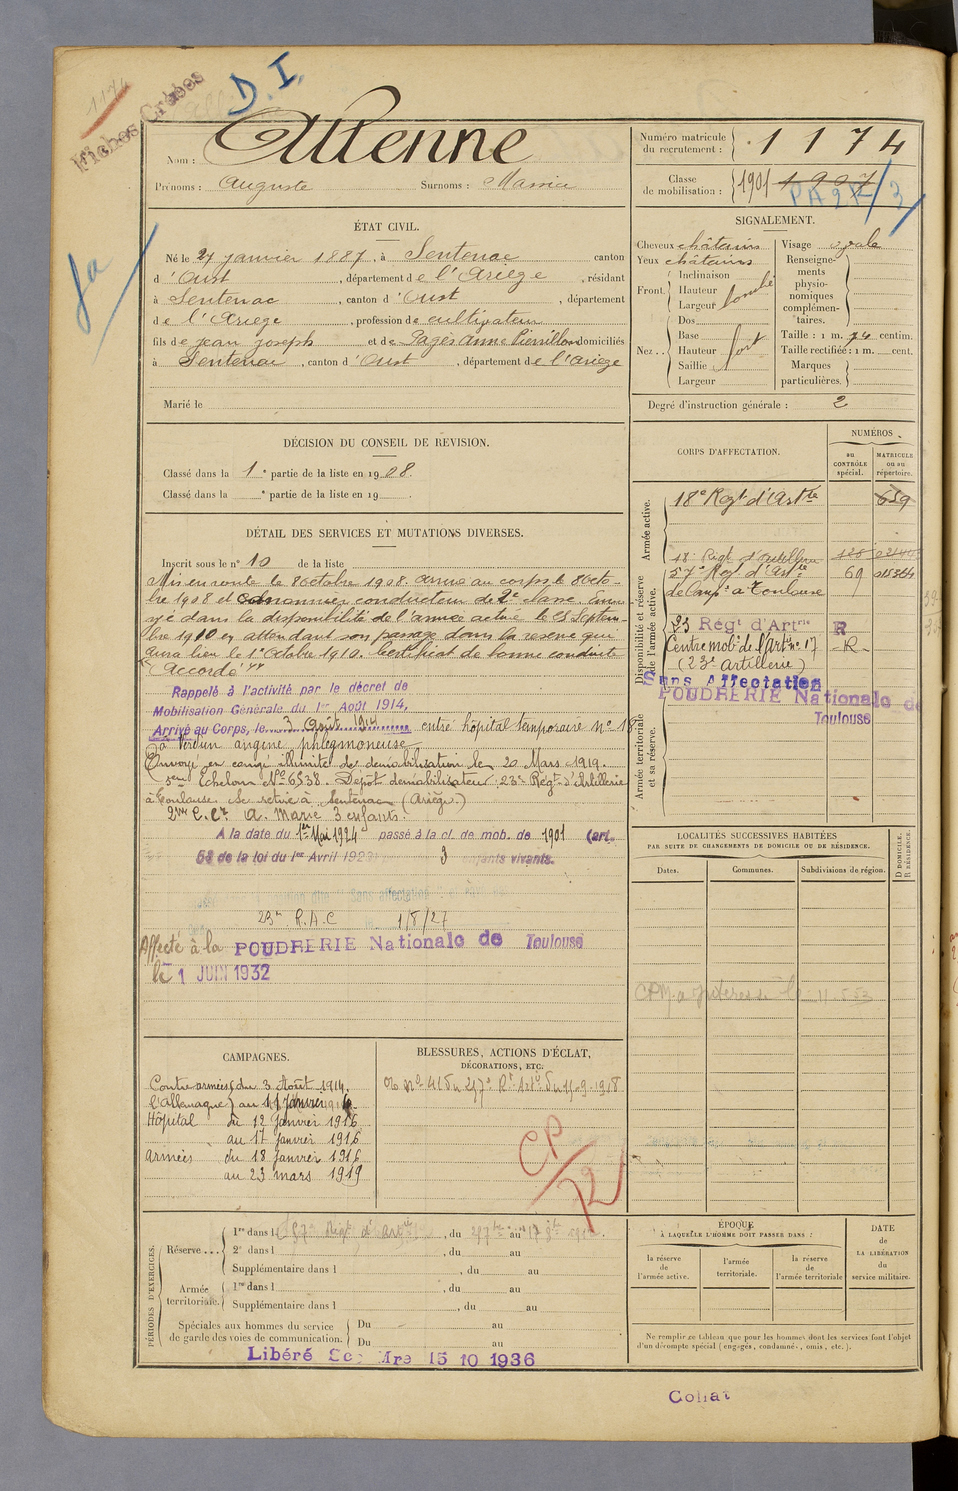 1174
Fiches Créées
D.I.
Attenne
Nom :
Prénoms : Auguste Surnoms : Massia
Numéro matricule du recrutement : 1174
Classe de mobilisation : 1901 1907
PA2R/3
fa
ÉTAT CIVIL.
Né le 27 janvier 1887, à Sentenac canton
d'Oust, département de l'Ariège, résidant
à Sentenac, canton d'Oust, département
de l'Ariège, profession de cultivateur
fils de jean joseph et de Pagès Anne domiciliés
à Sentenac, canton d'Oust, département de l'Ariège
Marié le
SIGNALEMENT.
Cheveux châtains
Yeux châtains
Front. Inclinaison
Hauteur
Largeur
bombé
Nez... Dos
Base
Hauteur
Saillie
Largeur
fort
Visage ovale
Renseignements physionomiques complémentaires.
Taille : 1 m. 74 centim.
Taille rectifiée : 1 m. cent.
Marques particulières.
Degré d'instruction générale : 2
DÉCISION DU CONSEIL DE RÉVISION.
Classé dans la 1e partie de la liste en 1908.
Classé dans la e partie de la liste en 19 .
DÉTAIL DES SERVICES ET MUTATIONS DIVERSES.
Inscrit sous le n° 10 de la liste
Mis en route le 8 octobre 1908. Arrivé au corps le 8 octo-
bre 1908 et canonnier conducteur de 2e classe. Envo-
yé dans la disponibilité de l'armée active le 25 Septem-
bre 1910 en attendant son passage dans la réserve qui
aura lieu le 1er Octobre 1910. Certificat de bonne conduite
"Accordé"
Rappelé à l'activité par le décret de
Mobilisation Générale du 1er Août 1914,
Arrivé au Corps, le 3 Août 1914 entré hôpital temporaire N° 16
à Verdun angine phlegmoneuse
Envoyé en congé illimité de démobilisation le 20 Mars 1919.
Echelon N° 6538. Dépôt démobilisateur : 23e Régt d'Artillerie
à Toulouse Se retire à Sentenac (Ariège.)
A. Marié 3 enfants.
A la date du 1er Mai 1924 passé à la cl. de mob. de 1901 (art.
58 de la loi du 1er Avril 1923) 3 enfants vivants.
Sans affectation
23e R.A.C 1/8/27
Affecté à la POUDRERIE Nationale de Toulouse
le 1 JUIN 1932
CORPS D'AFFECTATION.
NUMÉROS
au CONTRÔLE spécial.
MATRICULE ou au répertoire.
Armée active.
18e Regt d'Artie 659
Disponibilité et réserve de l'armée active.
18e Régt d'Artillerie
57e Reg. d'Artie 69
de Camp. à Toulouse
23 Régt d'Artrie R
Centre mobe de l'Artie n° 17 -R-
(23e artillerie)
Sans Affectation
POUDRERIE Nationale de
Toulouse
Armée territoriale et sa réserve.
LOCALITÉS SUCCESSIVES HABITÉES
PAR SUITE DE CHANGEMENTS DE DOMICILE OU DE RÉSIDENCE.
Dates. Communes. Subdivisions de région.
D DOMICILE. R RÉSIDENCE.
CAMPAGNES.
Contre armées du 3 Août 1914
l'Allemagne au 11 Janvier 1916
Hôpital du 12 Janvier 1916
au 17 janvier 1916
Armées du 18 Janvier 1916
au 23 mars 1919
BLESSURES, ACTIONS D'ÉCLAT,
DÉCORATIONS, ETC.
CP/R
PÉRIODES D'EXERCICES.
Réserve ...
1re dans l , du au
2e dans l , du au
Supplémentaire dans l , du au
Armée territoriale.
1re dans l , du au
Supplémentaire dans l , du au
Spéciales aux hommes du service
de garde des voies de communication.
Du au
Du au
Libéré 15 10 1936
ÉPOQUE
À LAQUELLE L'HOMME DOIT PASSER DANS :
la réserve de l'armée active.
l'armée territoriale.
la réserve de l'armée territoriale
DATE de LA LIBÉRATION du service militaire.
Ne remplir ce tableau que pour les hommes dont les services font l'objet
d'un décompte spécial (engagés, condamnés, omis, etc.).